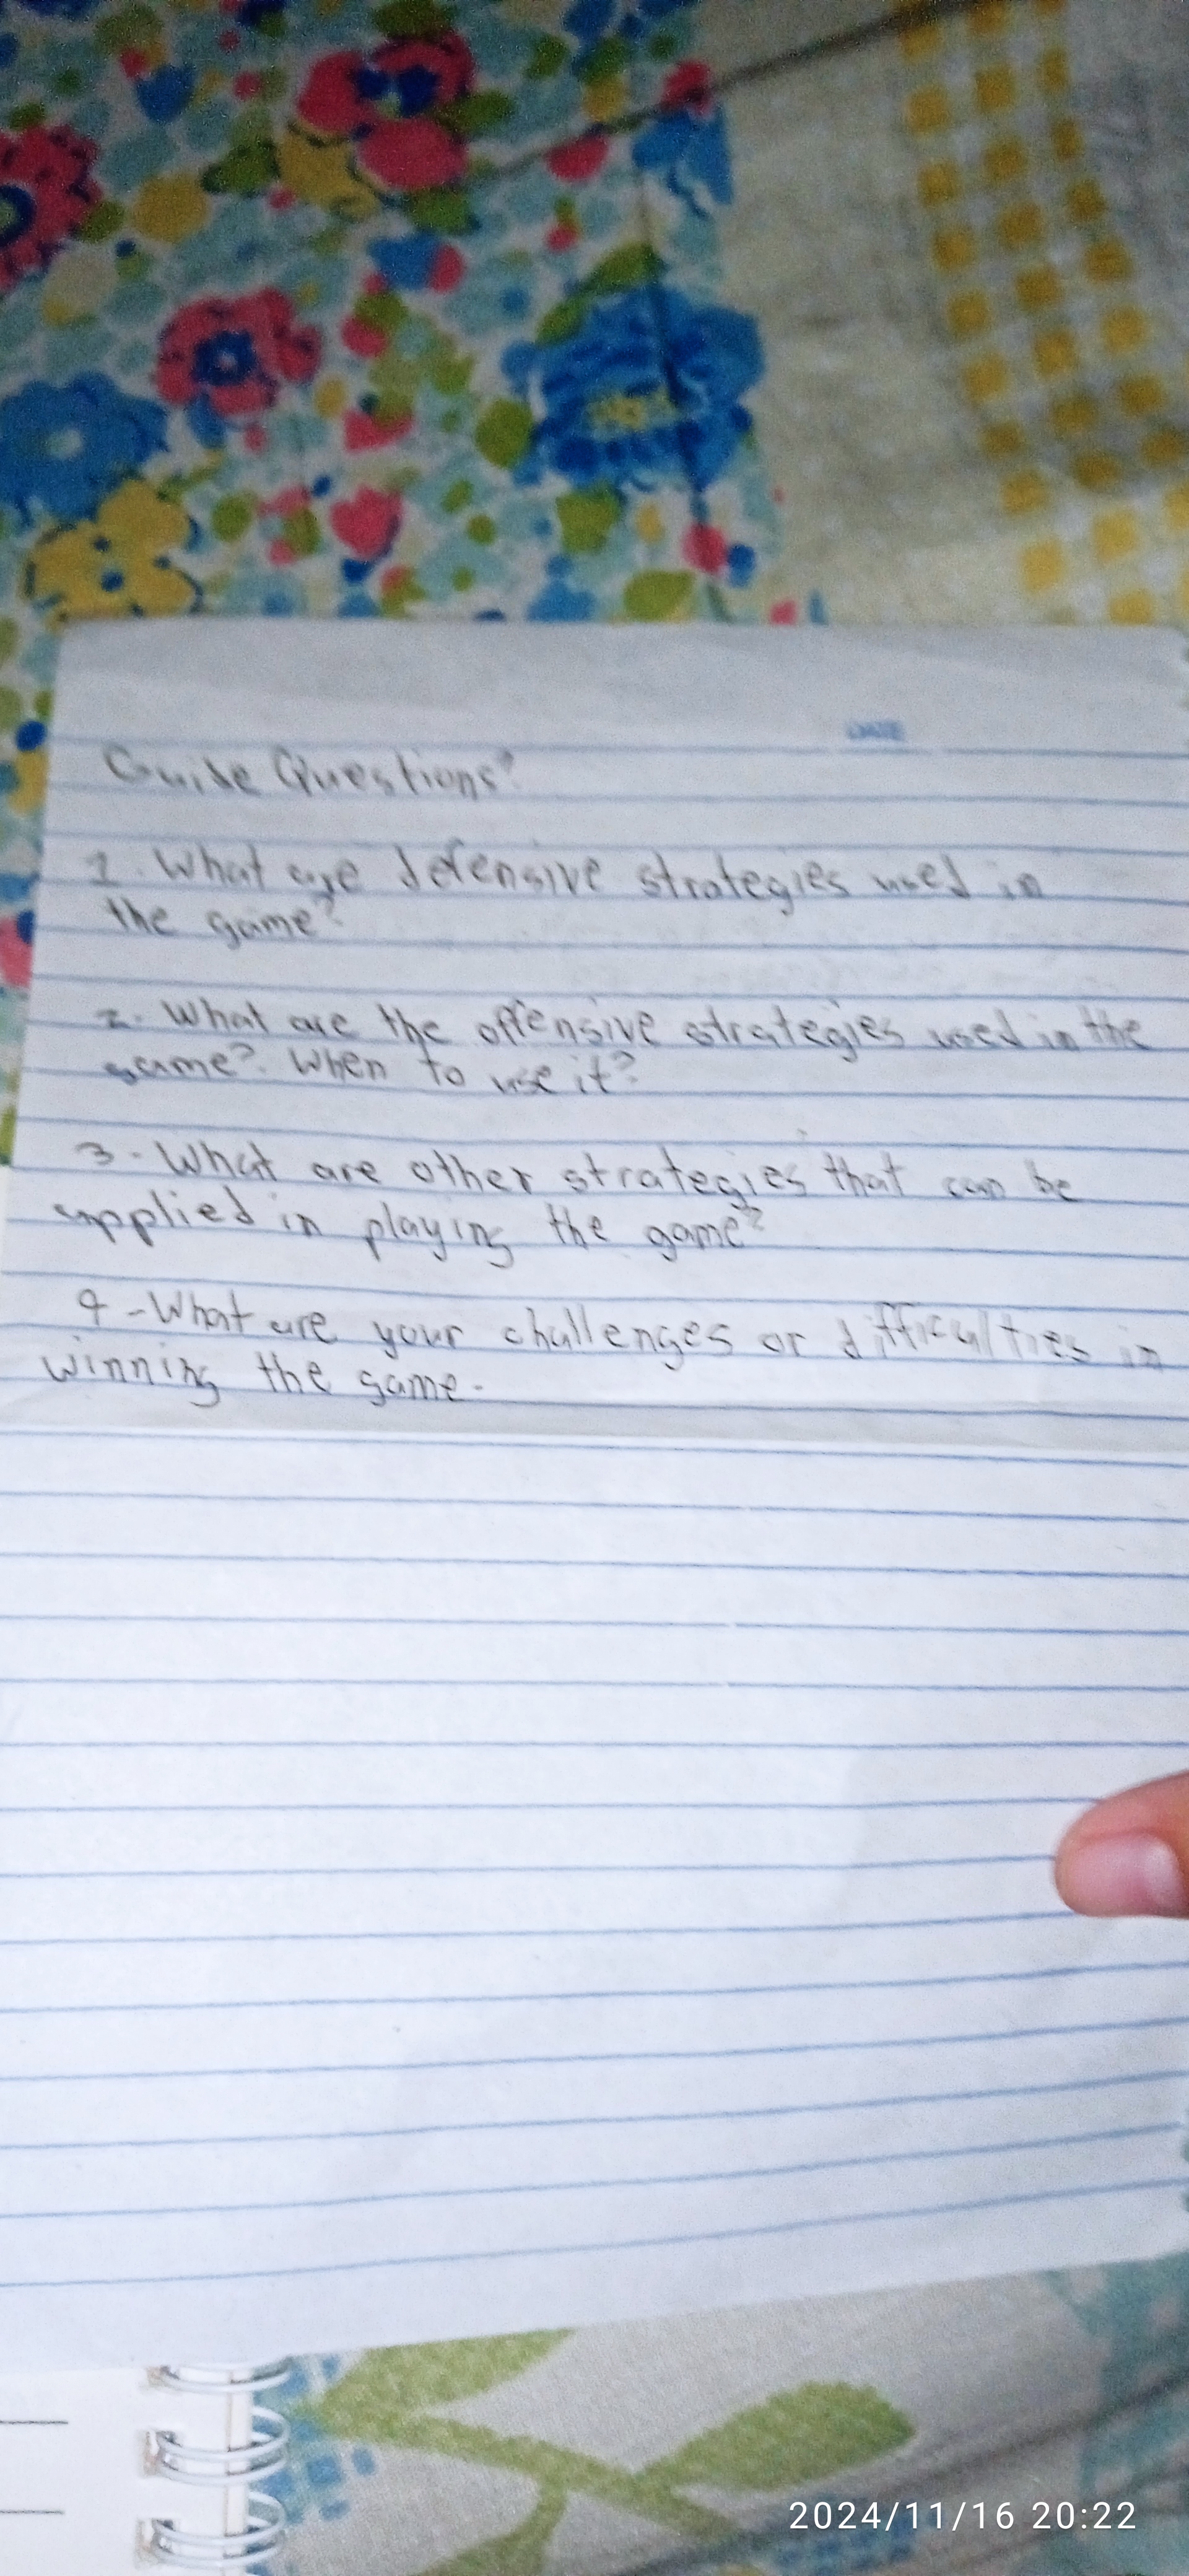 DATE
Guide Questions?
1. What are defensive strategies used in
the game?
2. What are the offensive strategies used in the
game? When to use it?
3. What are other strategies that can be
applied in playing the game?
4 - What are your challenges or difficulties in
winning the game.
2024/11/16 20:22